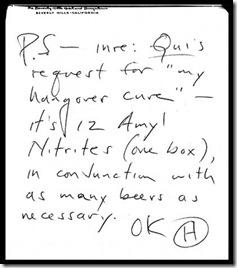 The Beverly Hills Hotel and Bungalows
BEVERLY HILLS • CALIFORNIA
P.S — inre: Qui's
request for "my
hangover cure" –
it's 12 Amyl
Nitrites (one box),
in conjunction with
as many beers as
necessary.
OK H